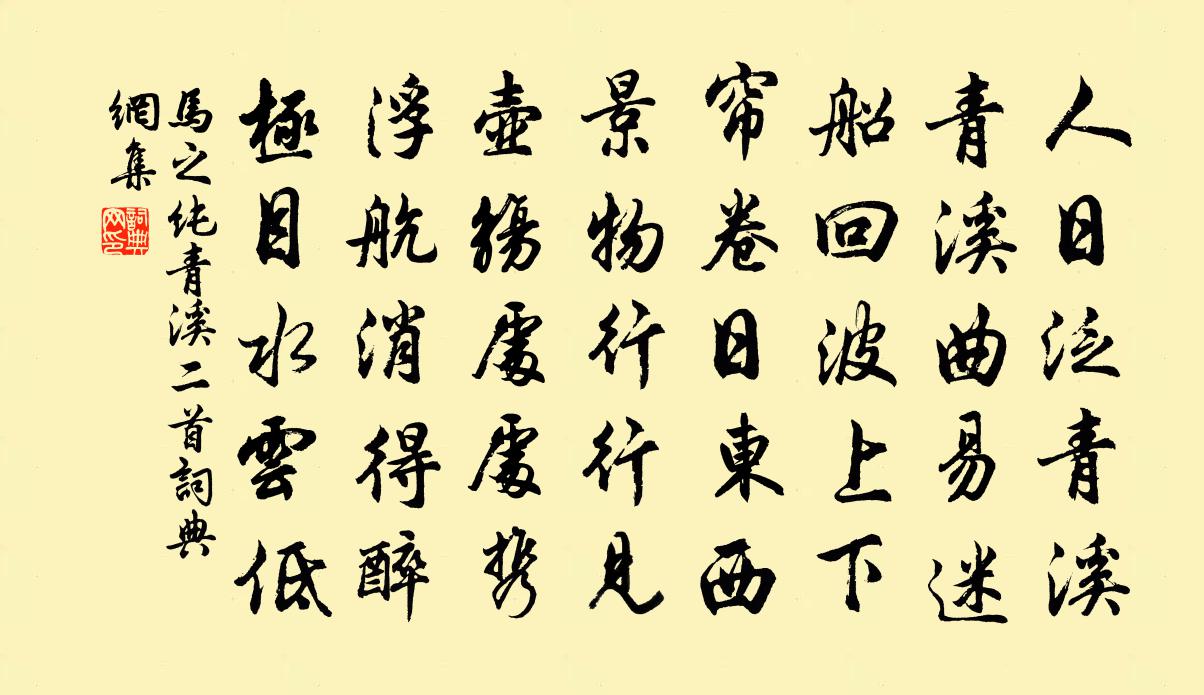 人日泛青溪
青溪曲易迷
船回波上下
帘卷日東西
景物行行見
壺觴處處携
浮航消得醉
極目水雲低
馬之純青溪二首詞典
網集
詞典
网印